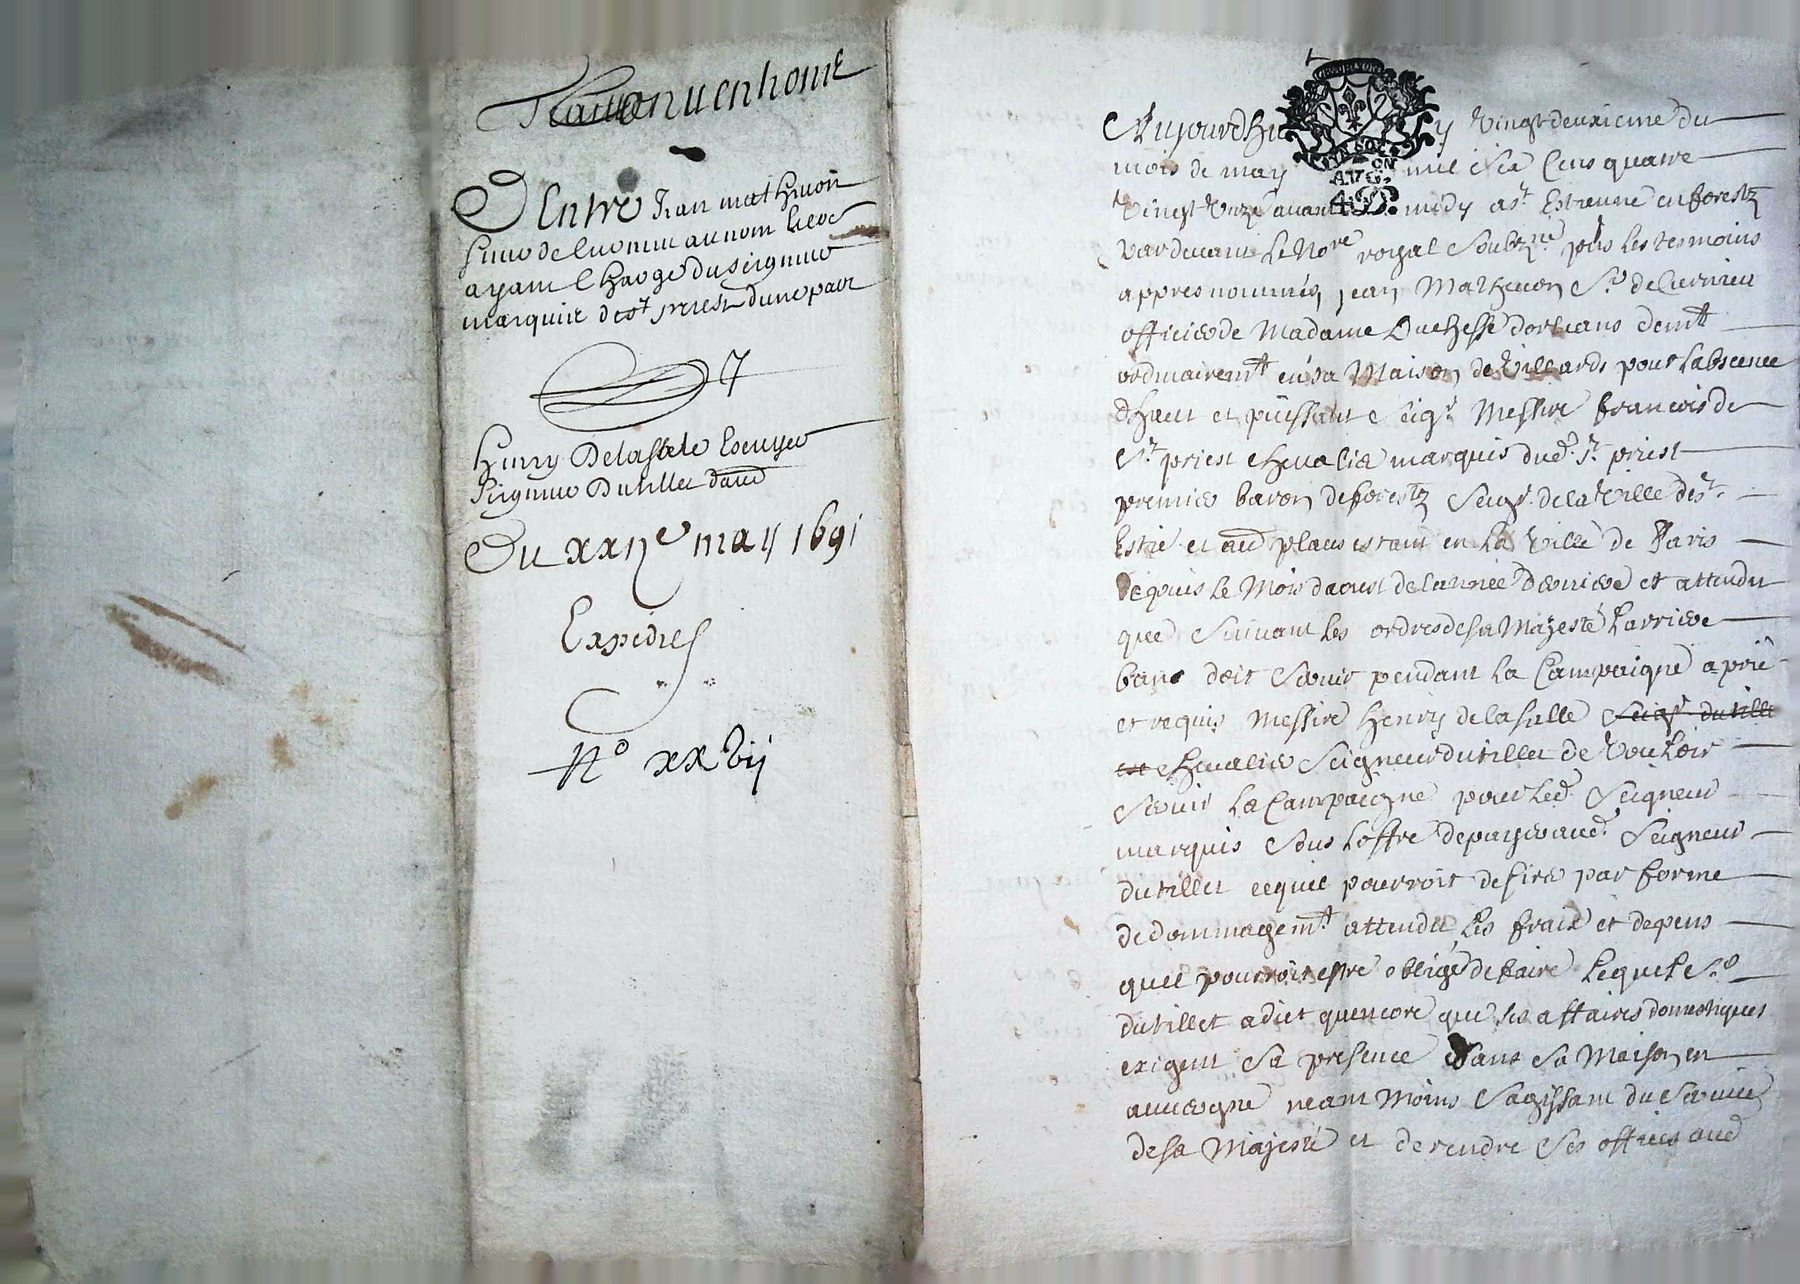 Traicté
Entre Jean mathevon
sieur de Curnieu au nom et
ayant Charge du seigneur
marquis de St priest dune part
Henry Delasalle Escuyer
seigneur Dutillet daud
Du xxije may 1691
Expédiés
No xxvij
Aujourdhuy vingt deuxieme du
mois de may mil six Cens quatre
Vingt Unze avant midy a St Estienne en forestz
pardevant Le Nore royal soubzne puis les tesmoins
appres nommés, Jean Mathevon Sr de Curnieu
officier de Madame Duchesse dorleans demt
ordinairemt en sa Maison de Villards pour Labscence
dhaut et puissant seigr Messire francois de
St priest chevalier marquis dud. St priest
premier baron de forestz seigr de la Ville de St
Estie et aud places estant en La Ville de Paris
depuis Le Mois daoust de lannée derniere et attendu
que suivant les ordres de sa Majesté Larriere
ban doit servir pendant la Campaigne a prié
et requis Messire henry delasalle seigr dutillet
chevalier seigneur dutillet de Vouloir
servir La Campaigne pour led. seigneur
marquis sous Loffre de payer aud. seigneur
dutillet ce quil pourroit desirer par forme
de dommagemt attendu les fraix et depens
quil pourroit estre obligé de faire Lequel Sr
dutillet a dict quencore que ses affaires domestiques
exigent sa presence dans sa Maison en
auvergne neant Moins sagissant du service
de sa Majesté et de rendre ses offices aud